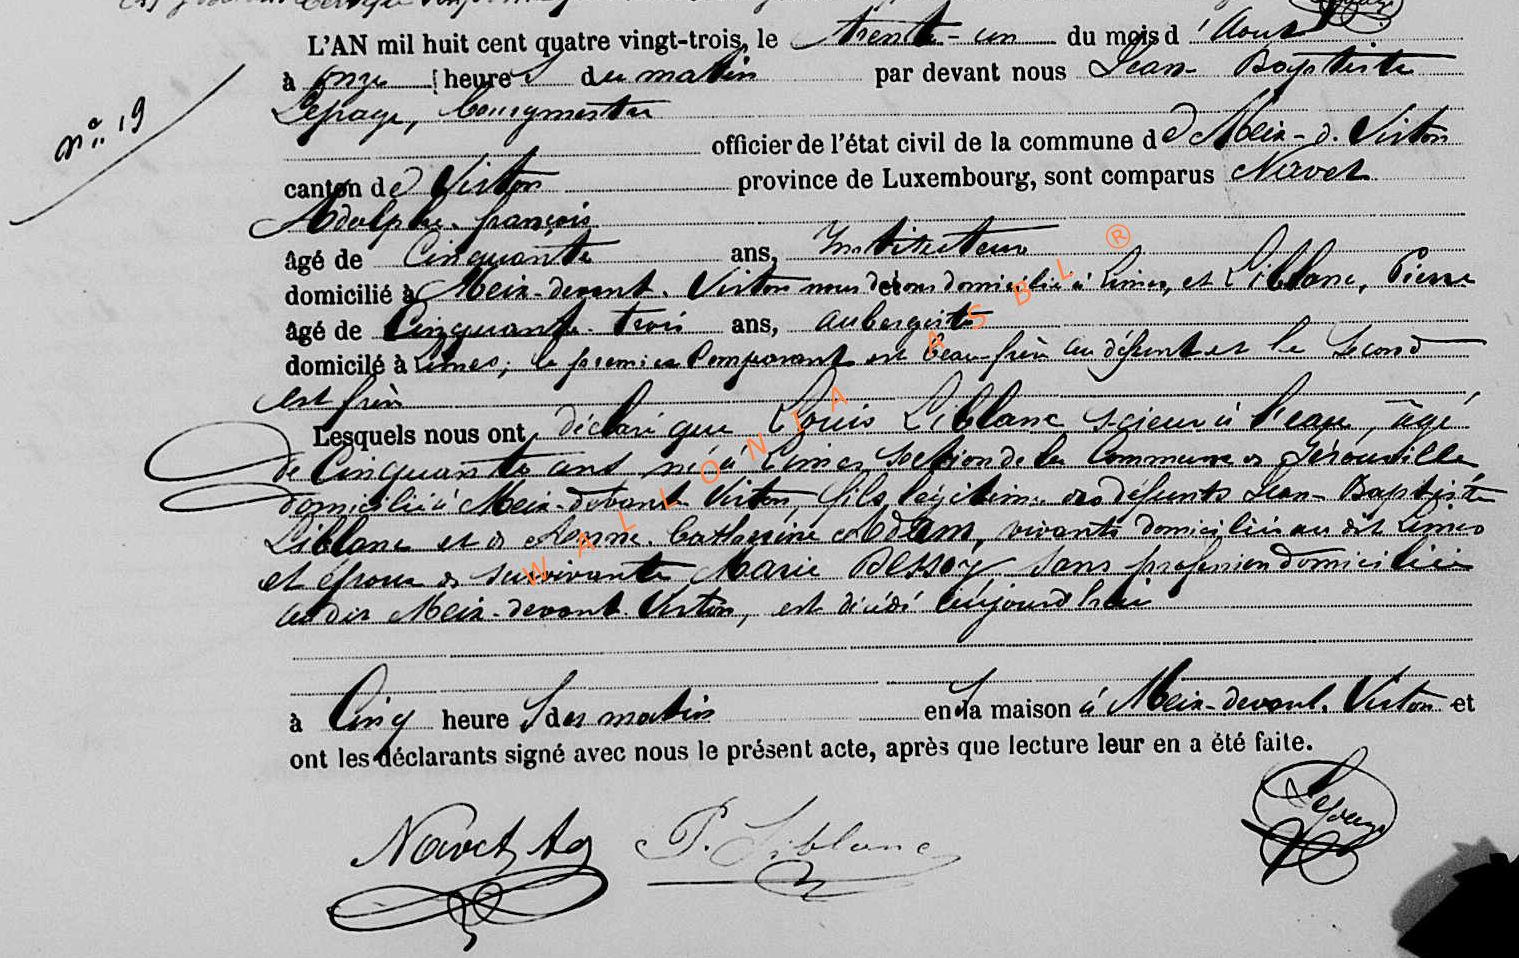 L'AN mil huit cent quatre vingt-trois, le trente-un du mois d'Aout
à onze heures du matin par devant nous Jean-Baptiste
nº 19
Lepage, bourgmestre
officier de l'état civil de la commune de Meix-d. Virton
canton de Virton province de Luxembourg, sont comparus Navet
Adolphe-françois
âgé de Cinquante ans, Instituteur
domicilié à Meix-devant-Virton nous disons domicilié à Limes, et Liblanc, Pierre
âgé de Cinquante-trois ans, aubergiste
domicilé à Limes; le premier Comparant est beau-frère au défunt et le second
est frère
Lesquels nous ont déclaré que Louis Liblanc scieur à l'eau, âgé
de Cinquante ans né à Limes, section de la Commune de Gérouville
domicilié à Meix-devant Virton, fils légitime des défunts Jean-Baptiste
Liblanc et de Anne-Catherine Adam, vivants domiciliés au dit Limes
et époux de survivante Marie DESSOY sans profession domiciliée
au dit Meix-devant-Virton, est décédé aujourd'hui
à Cinq heures du matin en sa maison à Meix-devant-Virton et
ont les déclarants signé avec nous le présent acte, après que lecture leur en a été faite.
Navet, Ad P. Liblanc Lepage
WALLONIA ASBL ®